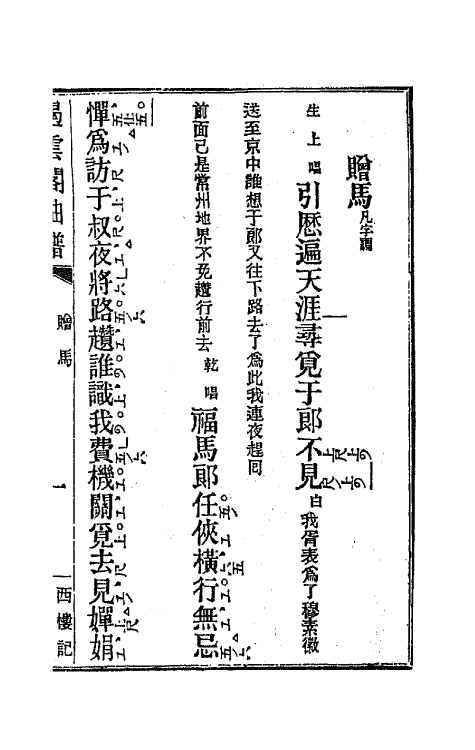 贈馬凡字調
生上唱引歷遍天涯尋覓于郎不見白我胥表爲了穆素徽
送至京中誰想于郎又往下路去了爲此我連夜趕回
前面已是常州地界不免趲行前去乾唱福馬郎任俠橫行無忌
憚爲訪于叔夜將路趲誰識我費機關覓去見嬋娟
遏雲閣曲譜 贈馬 一 西樓記